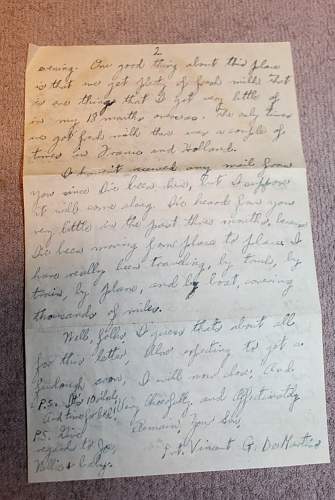 2
evening. One good thing about this place
is that we get plenty of fresh milk. That
is one thing that I got very little of
in my 18 months overseas. The only times
we got fresh milk there was a couple of
times in France and Holland.
I haven't received any mail from
you since I've been here, but I suppose
it will come along. I've heard from you
very little in the past three months, because
I've been moving from place to place. I
have really been traveling, by truck, by
train, by plane, and by boat, covering
thousands of miles.
Well, folks, I guess that's about all
for this letter. Also expecting to get a
furlough soon, I will now close. And
P.S. It's 10 o'clock
And time for bed. Very Cheerfully, and Affectionately
P.S. Give Remain, Your Son,
regards to Joe, Vincent G.
Nellie & baby.